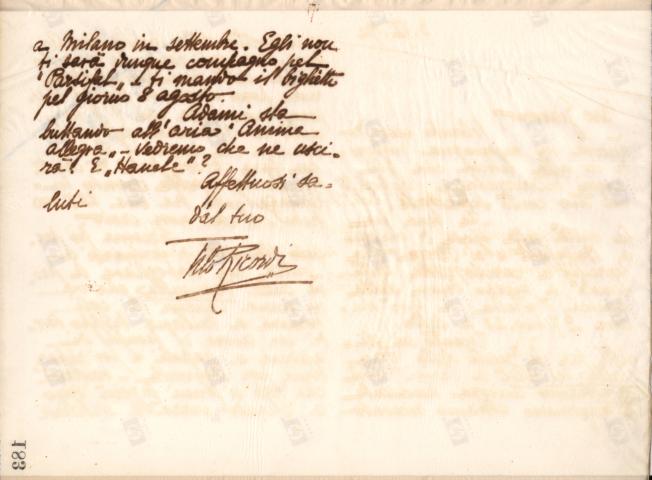 a Milano in settembre. Egli non
ti sarà dunque compagno pel
"Parsifal", e ti mando il biglietto
pel giorno 8 agosto.
Adami sta
buttando all'aria "Anima
allegra" - Vedremo che ne usci-
rà! E "Hanele"?
Affettuosi sa-
luti
dal tuo
Tito Ricordi
183